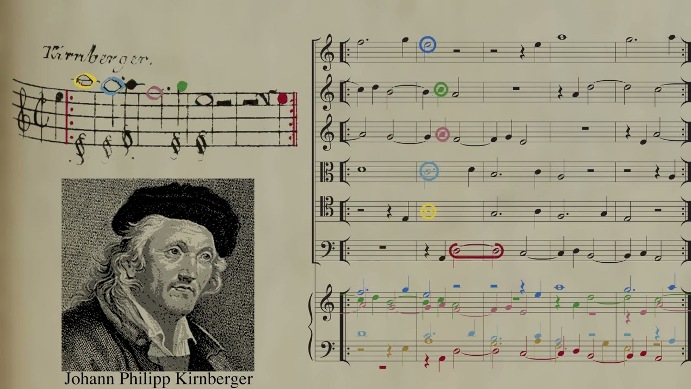 Kirnberger.
Johann Philipp Kirnberger